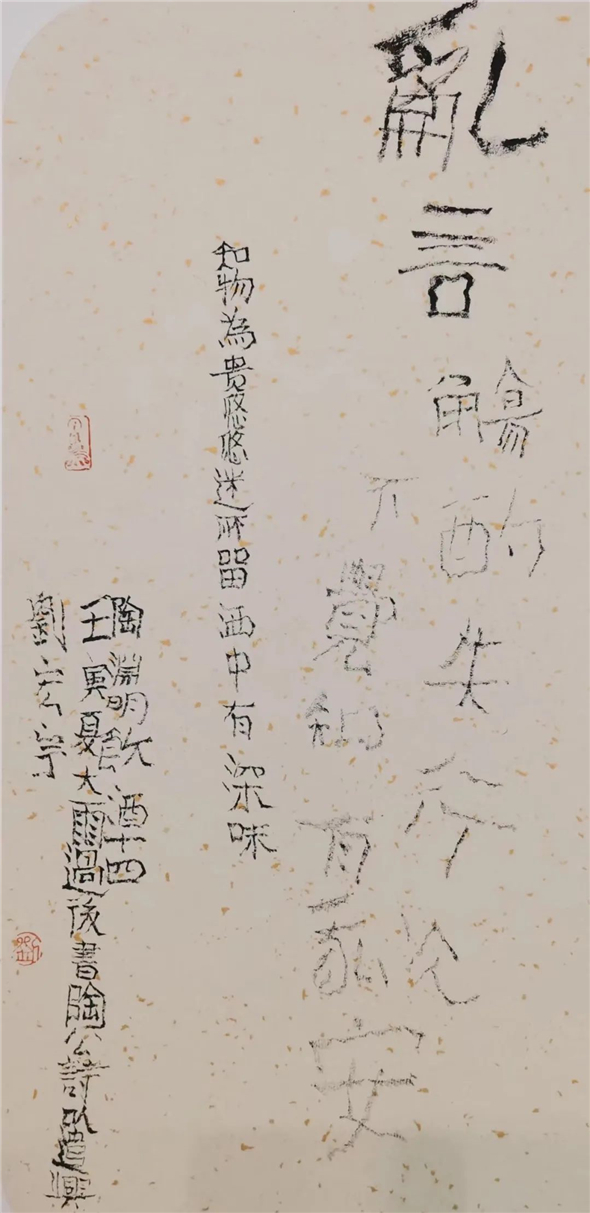 亂言觴酌失行次
不覺知有我安
知物為贵悠悠迷所留酒中有深味
陶淵明飲酒十四
壬寅夏大雨過後書陶公詩以遣興
劉